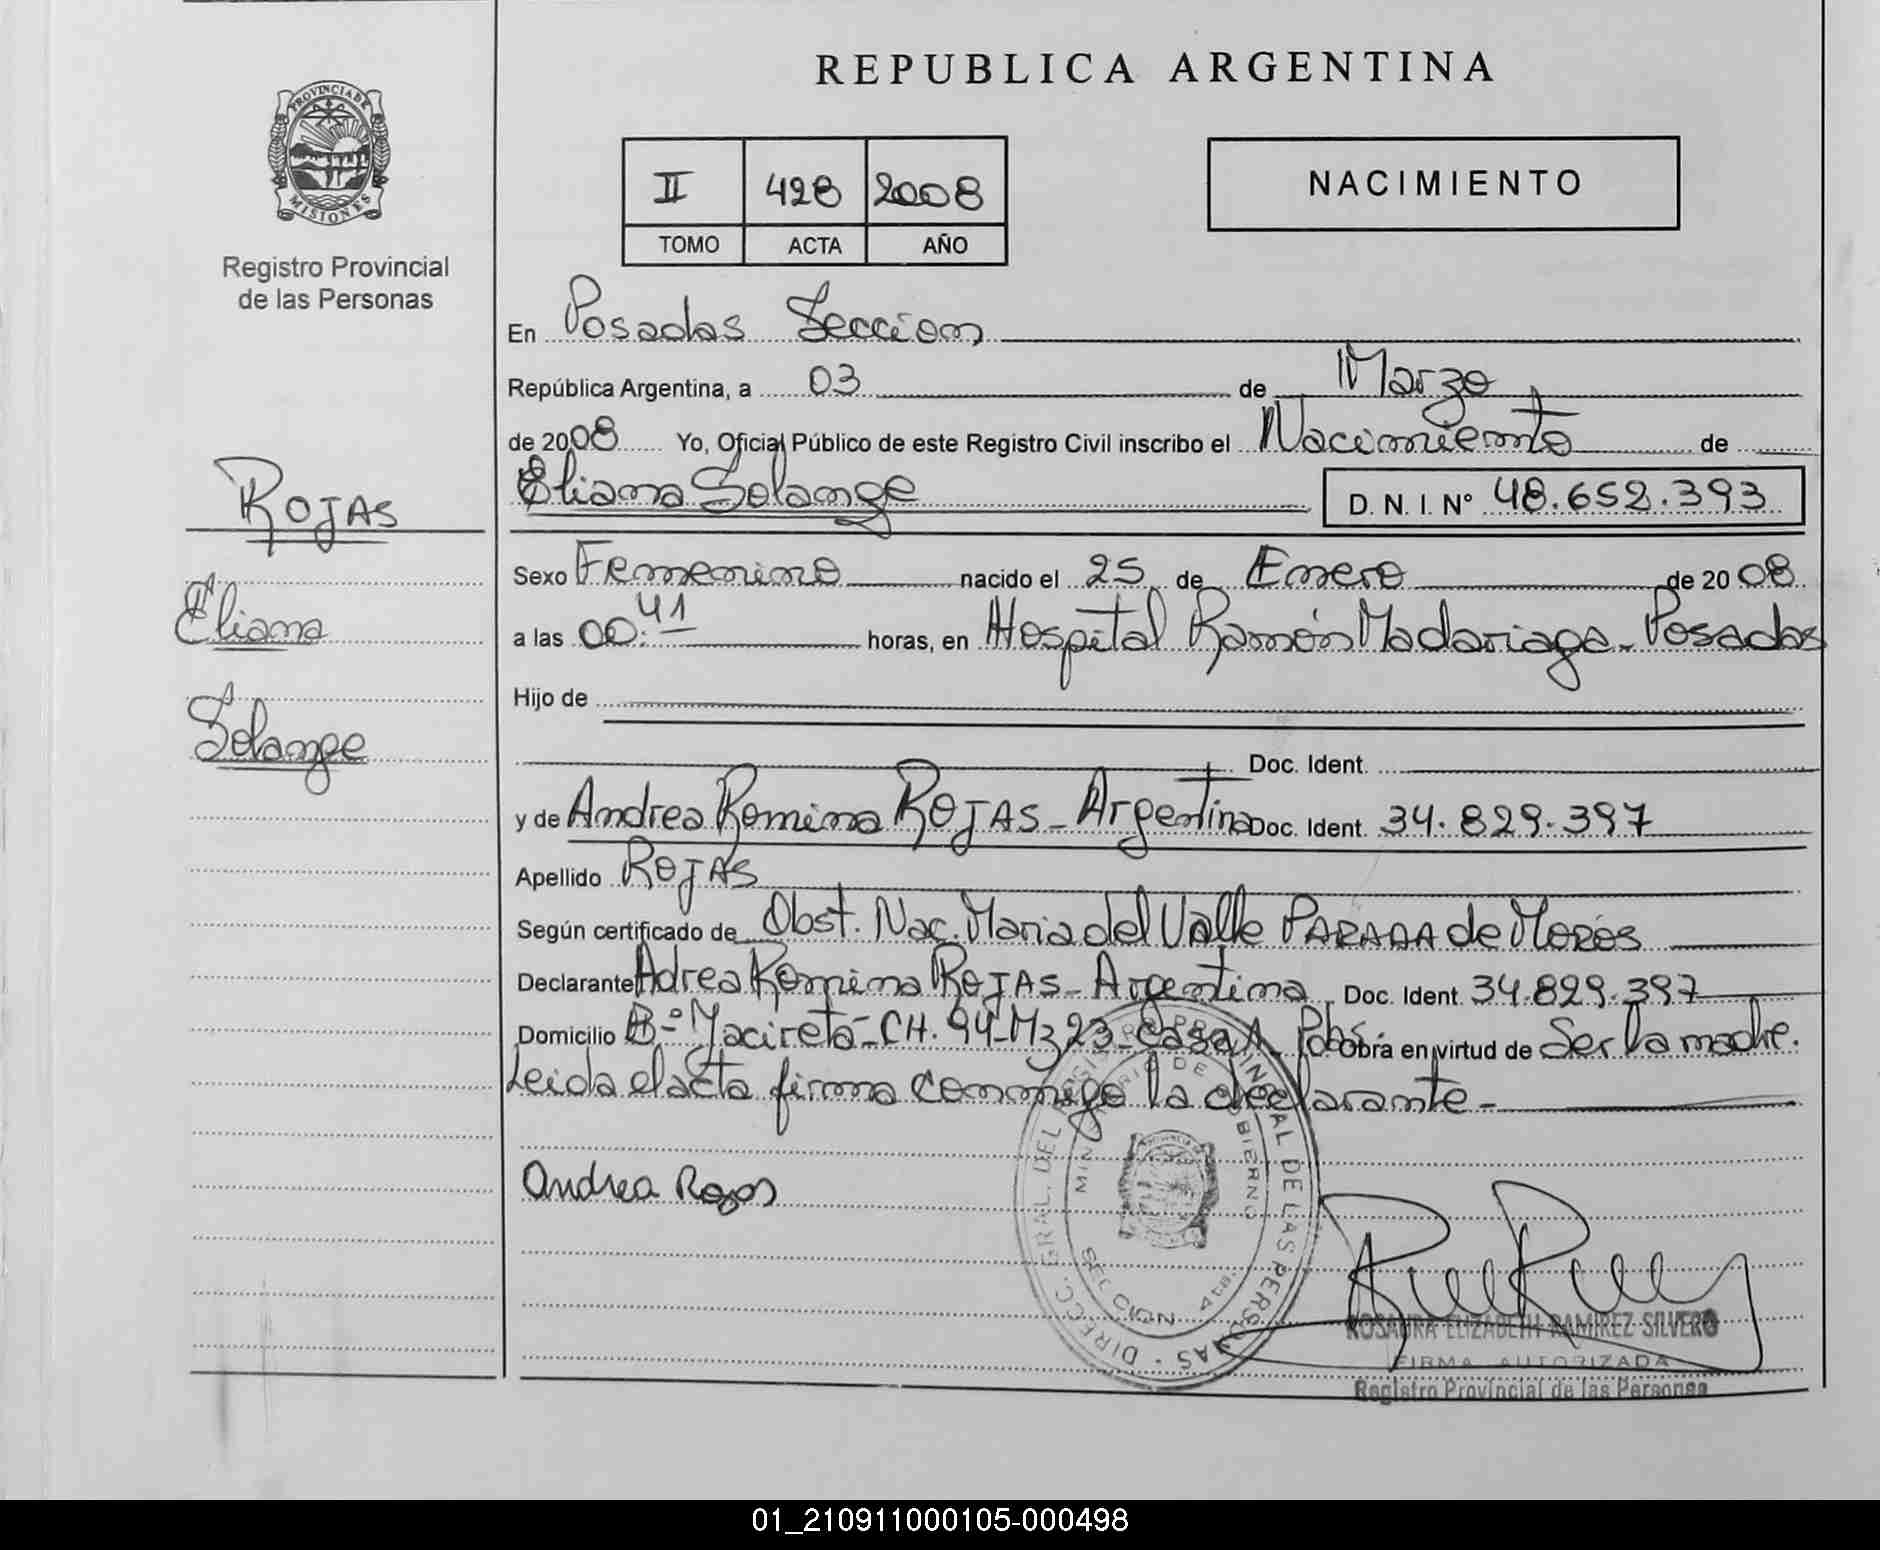 REPUBLICA ARGENTINA
PROVINCIA DE
MISIONES
Registro Provincial
de las Personas
II 428 2008
TOMO ACTA AÑO
NACIMIENTO
En Posadas Seccion
República Argentina, a 03 de Marzo
de 2008 Yo, Oficial Público de este Registro Civil inscribo el Nacimiento de
ROJAS
Eliana
Solange
Eliana Solange D. N. I. Nº 48.652.393
Sexo Femenino nacido el 25 de Enero de 2008
a las 00:41 horas, en Hospital Ramón Madariaga - Posadas
Hijo de
Doc. Ident.
y de Andrea Romina ROJAS - Argentina Doc. Ident. 34.829.397
Apellido ROJAS
Según certificado de Obst. Nac. Maria del Valle PARADA de Morós
Declarante Adrea Romina ROJAS - Argentina Doc. Ident. 34.829.397
Domicilio Bº Yacireta - CH. 94 - Mz 23 - Casa A - Pdas Obra en virtud de Ser la madre.
Leida el acta firma conmigo la declarante -
Andrea Rojas
DIRECC. GRAL. DEL REGISTRO PROVINCIAL DE LAS PERSONAS
MINISTERIO DE GOBIERNO
SECCION 4ta.
ROSAURA ELIZABETH RAMIREZ SILVERO
FIRMA AUTORIZADA
Registro Provincial de las Personas
01_210911000105-000498